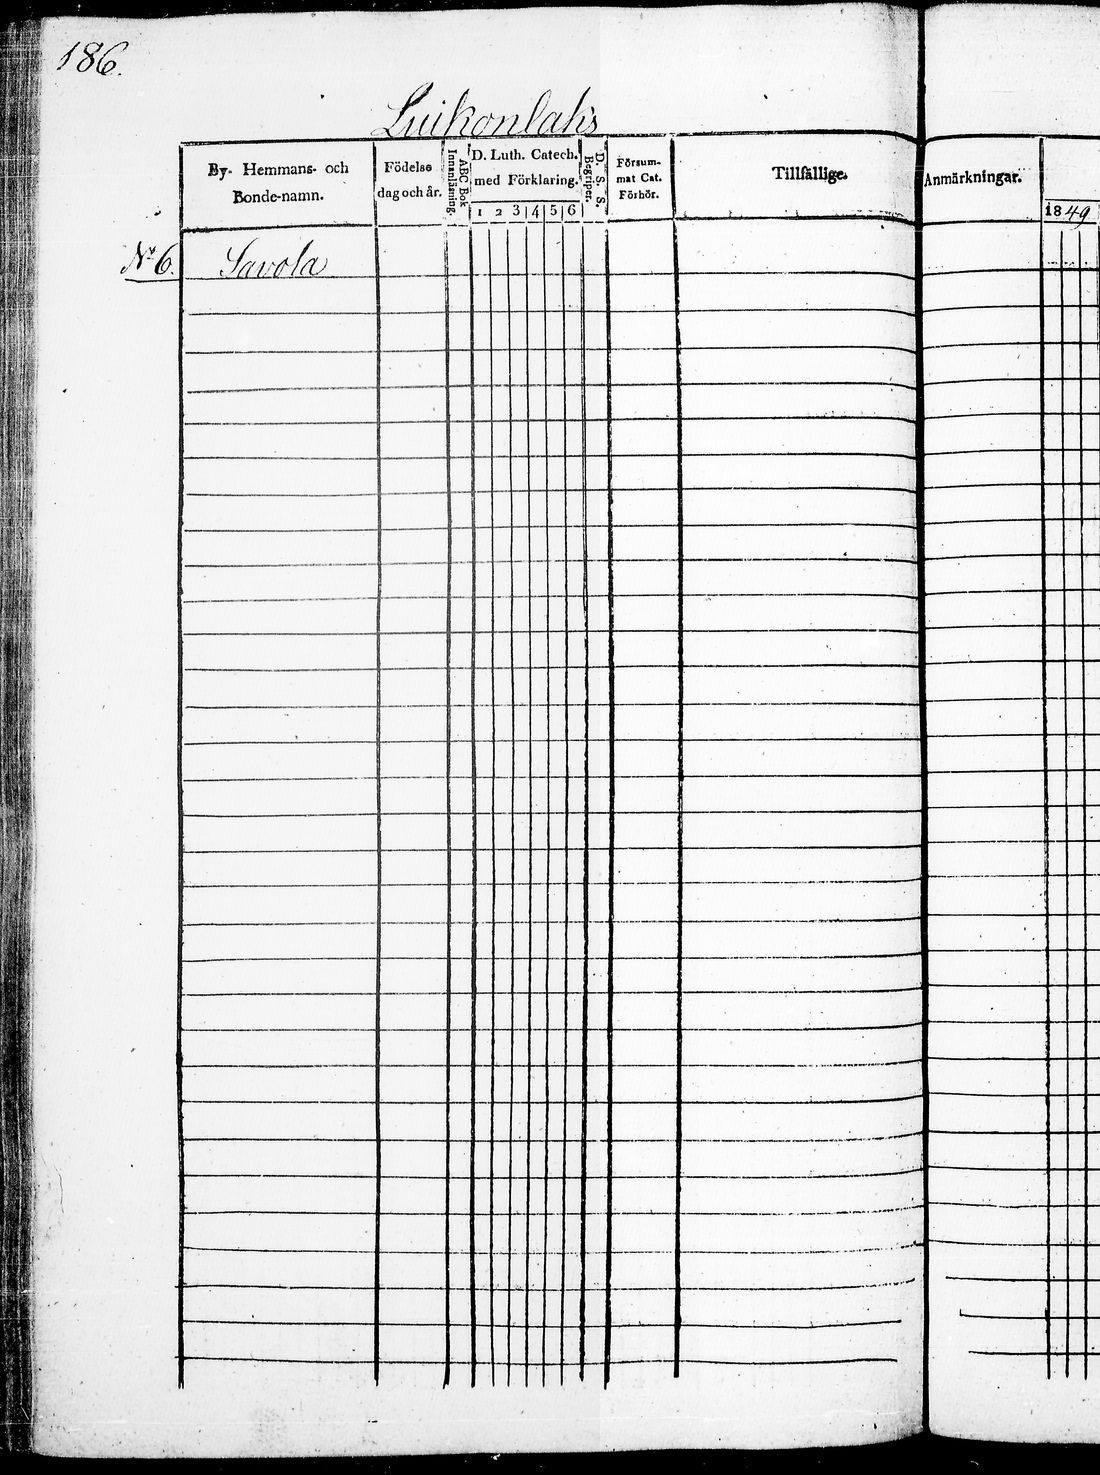 186.
Luikonlaks
By- Hemmans- och
Bonde-namn.
Födelse
dag och år.
ABC Bok
Innanläsning.
D. Luth. Catech.
med Förklaring.
1 2 3 4 5 6
D. S. S.
Begriper.
Försum-
mat Cat.
Förhör.
Tillfällige.
Anmärkningar.
1849
No 6. Savola